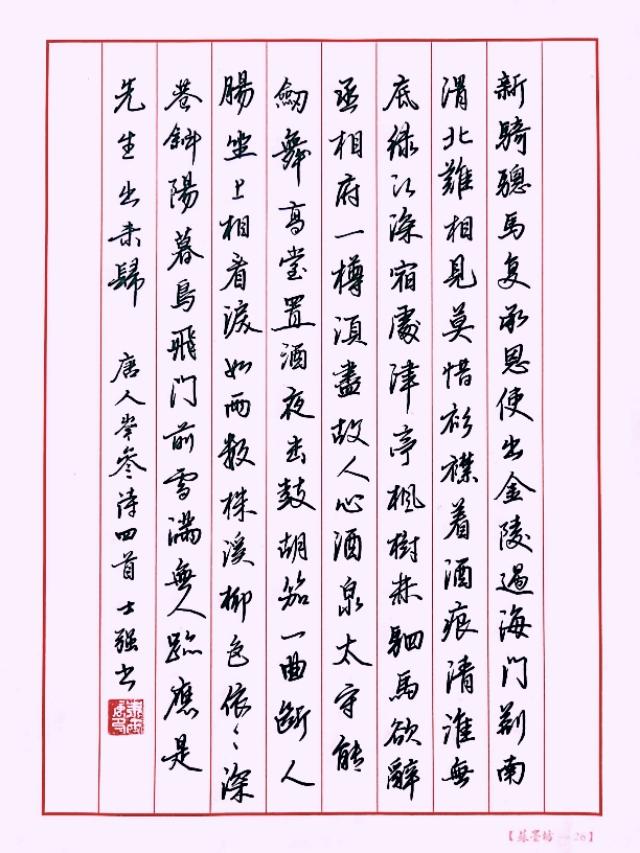 新騎驄馬复承恩使出金陵過海门荆南
渭北難相見莫惜衫襟着酒痕清淮無
底绿江深宿處津亭枫樹林驷馬欲辭
丞相府一樽須盡故人心酒泉太守能
劒舞高堂置酒夜击鼓胡笳一曲断人
腸坐上相看淚如雨数株溪柳色依〻深
巷斜陽暮鳥飛门前雪满無人跡應是
先生出未歸 唐人岑參诗四首 士强书
【蘇墨坊—26】